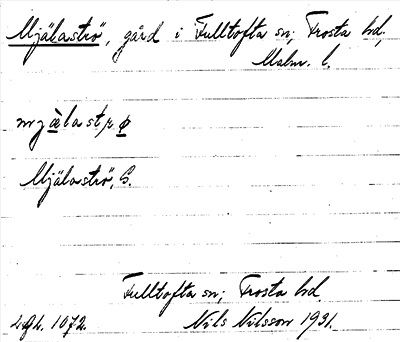 Mjälaströ, gård i Fulltofta sn; Frosta hd,
Malm. l.
mjàlastrø
Mjälaströ, G.
Fulltofta sn; Frosta hd.
Lgh. 1072. Nils Nilsson 1931.